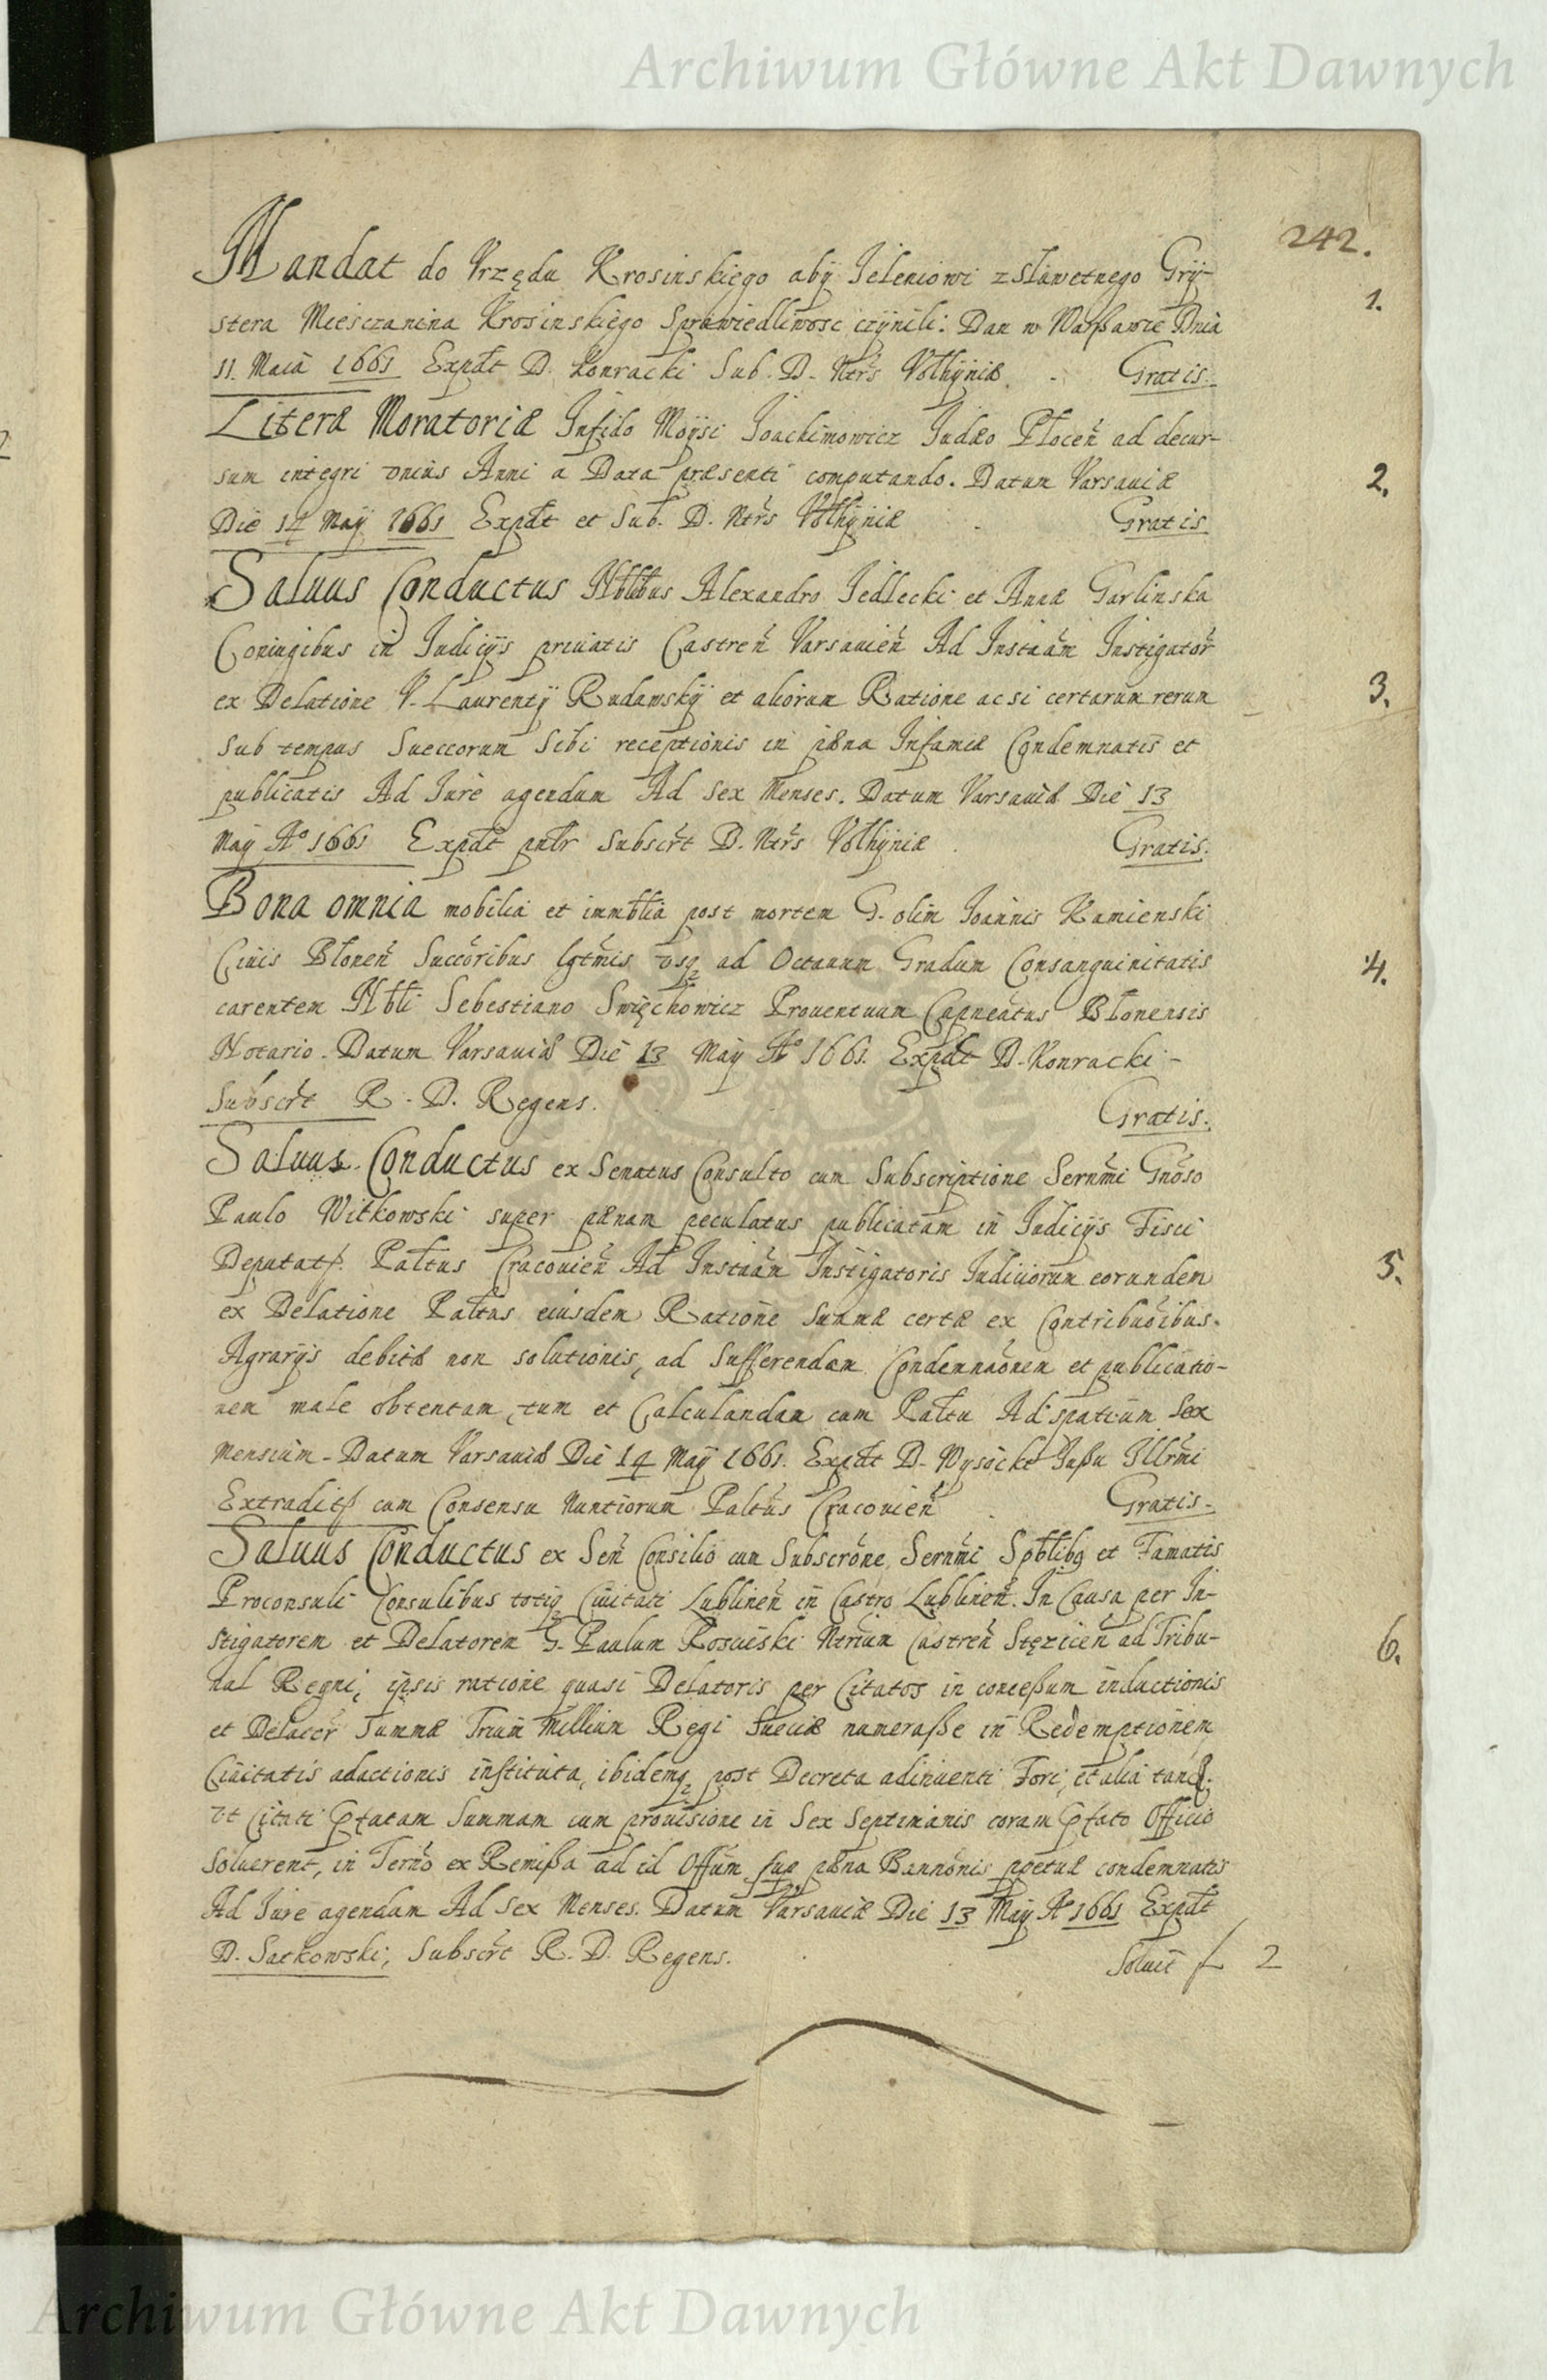 Archiwum Główne Akt Dawnych
242.
Mandat do Vrzędu Krosinskiego aby Ieleniowi z Sławetnego Gry-
stera Miesczanina Krosinskiego Sprawiedliwosc czynili. Dan w Warßawie Dnia
11. Maia 1661 Expdt D. Konracki Sub. D. Ntrs Vołhyniæ. - Gratis.
1.
Literæ Moratoriæ Infido Moysi Ioachimowicz Iudæo Płoceñ ad decur-
sum integri vnius Anni a Data præsenti computando. Datum Varsauiæ
Die 14 Maÿ 1661 Expdt et Sub. D. Ntrs Vołhyniæ Gratis
2.
Saluus Conductus Nblibus Alexandro Iedlecki et Annæ Garlinska
Coniugibus in Iudicÿs priuatis Castreñ Varsauieñ Ad Instãam Instigator
ex Delatione V. Laurentÿ Rudawskÿ et aliorum Ratione acsi certarum rerum
Sub tempus Sueccorum Sibi receptionis in pæna Infamiæ Condemnatis et
publicatis Ad Iure agendum Ad Sex Menses. Datum Varsauiæ Die 13
Maÿ Aº 1661 Expdt pntr Subscrt D. Ntrs Vołhyniæ. Gratis.
3.
Bona omnia mobilia et immblia post mortem G. olim Ioannis Kamienski
Ciuis Błoneñ Succoribus lgtmis vsq ad Octauum Gradum Consanguinitatis
carentem Nbli Sebestiano Swięchowicz Prouentuum Capneatus Błonensis
Notario. Datum Varsauiæ Die 13 Maÿ Aº 1661. Expdt D. Konracki -
Subscrt R. D. Regens. Gratis.
4.
Saluus Conductus ex Senatus Consulto cum Subscriptione Sernmi Gnoso
Paulo Witkowski super pænam peculatus publicatam in Iudicÿs Fisci
Deputat. Paltus Cracouieñ Ad Instãam Instigatoris Iudiciorum eorundem
ex Delatione Paltus eiusdem Ratione Summæ certæ ex Contribuõibus.
Agrarÿs debitæ non solutionis, ad Sufferendam Condemnãonem et publicatio-
nem male obtentam, tum et Calculandam cum Paltu Ad spatium Sex
Mensium. Datum Varsauiæ Die 14 Maÿ 1661. Expdt D. Wysocki Iußu Illrmi
Extradit cum Consensu Nuntiorum Paltus Cracouieñ. Gratis.
5.
Saluus Conductus ex Señ Consilio cum Subscrone Sernmi Spblibq et Famatis
Proconsuli Consulibus totiq Ciuitati Lublineñ in Castro Lublineñ. In Causa per In-
stigatorem et Delatorem G. Paulum Rosciiski Ntrium Castreñ Stęziceñ ad Tribu-
nal Regni, ipsis ratione quasi Delatoris per Citatos in conceßum inductionis
et Delacer Summæ Trium Millium Regi Sueciæ numeraße in Redemptionem
Ciuitatis adactionis instituta, ibidemq post Decreta adinuenti Fori, et alia tand.
vt Citati Pfatam Summam cum prouisione in Sex Septimanis coram Pfato Officio
Soluerent, in Termo ex Remißa ad id Offum sup pæna Bannonis ppetuæ condemnatis
Ad Iure agendum Ad Sex Menses. Datum Varsauiæ Die 13 Maÿ Aº 1661 Expdt
D. Satkowski, Subscrt R. D. Regens. Soluit f 2
6.
Archiwum Główne Akt Dawnych